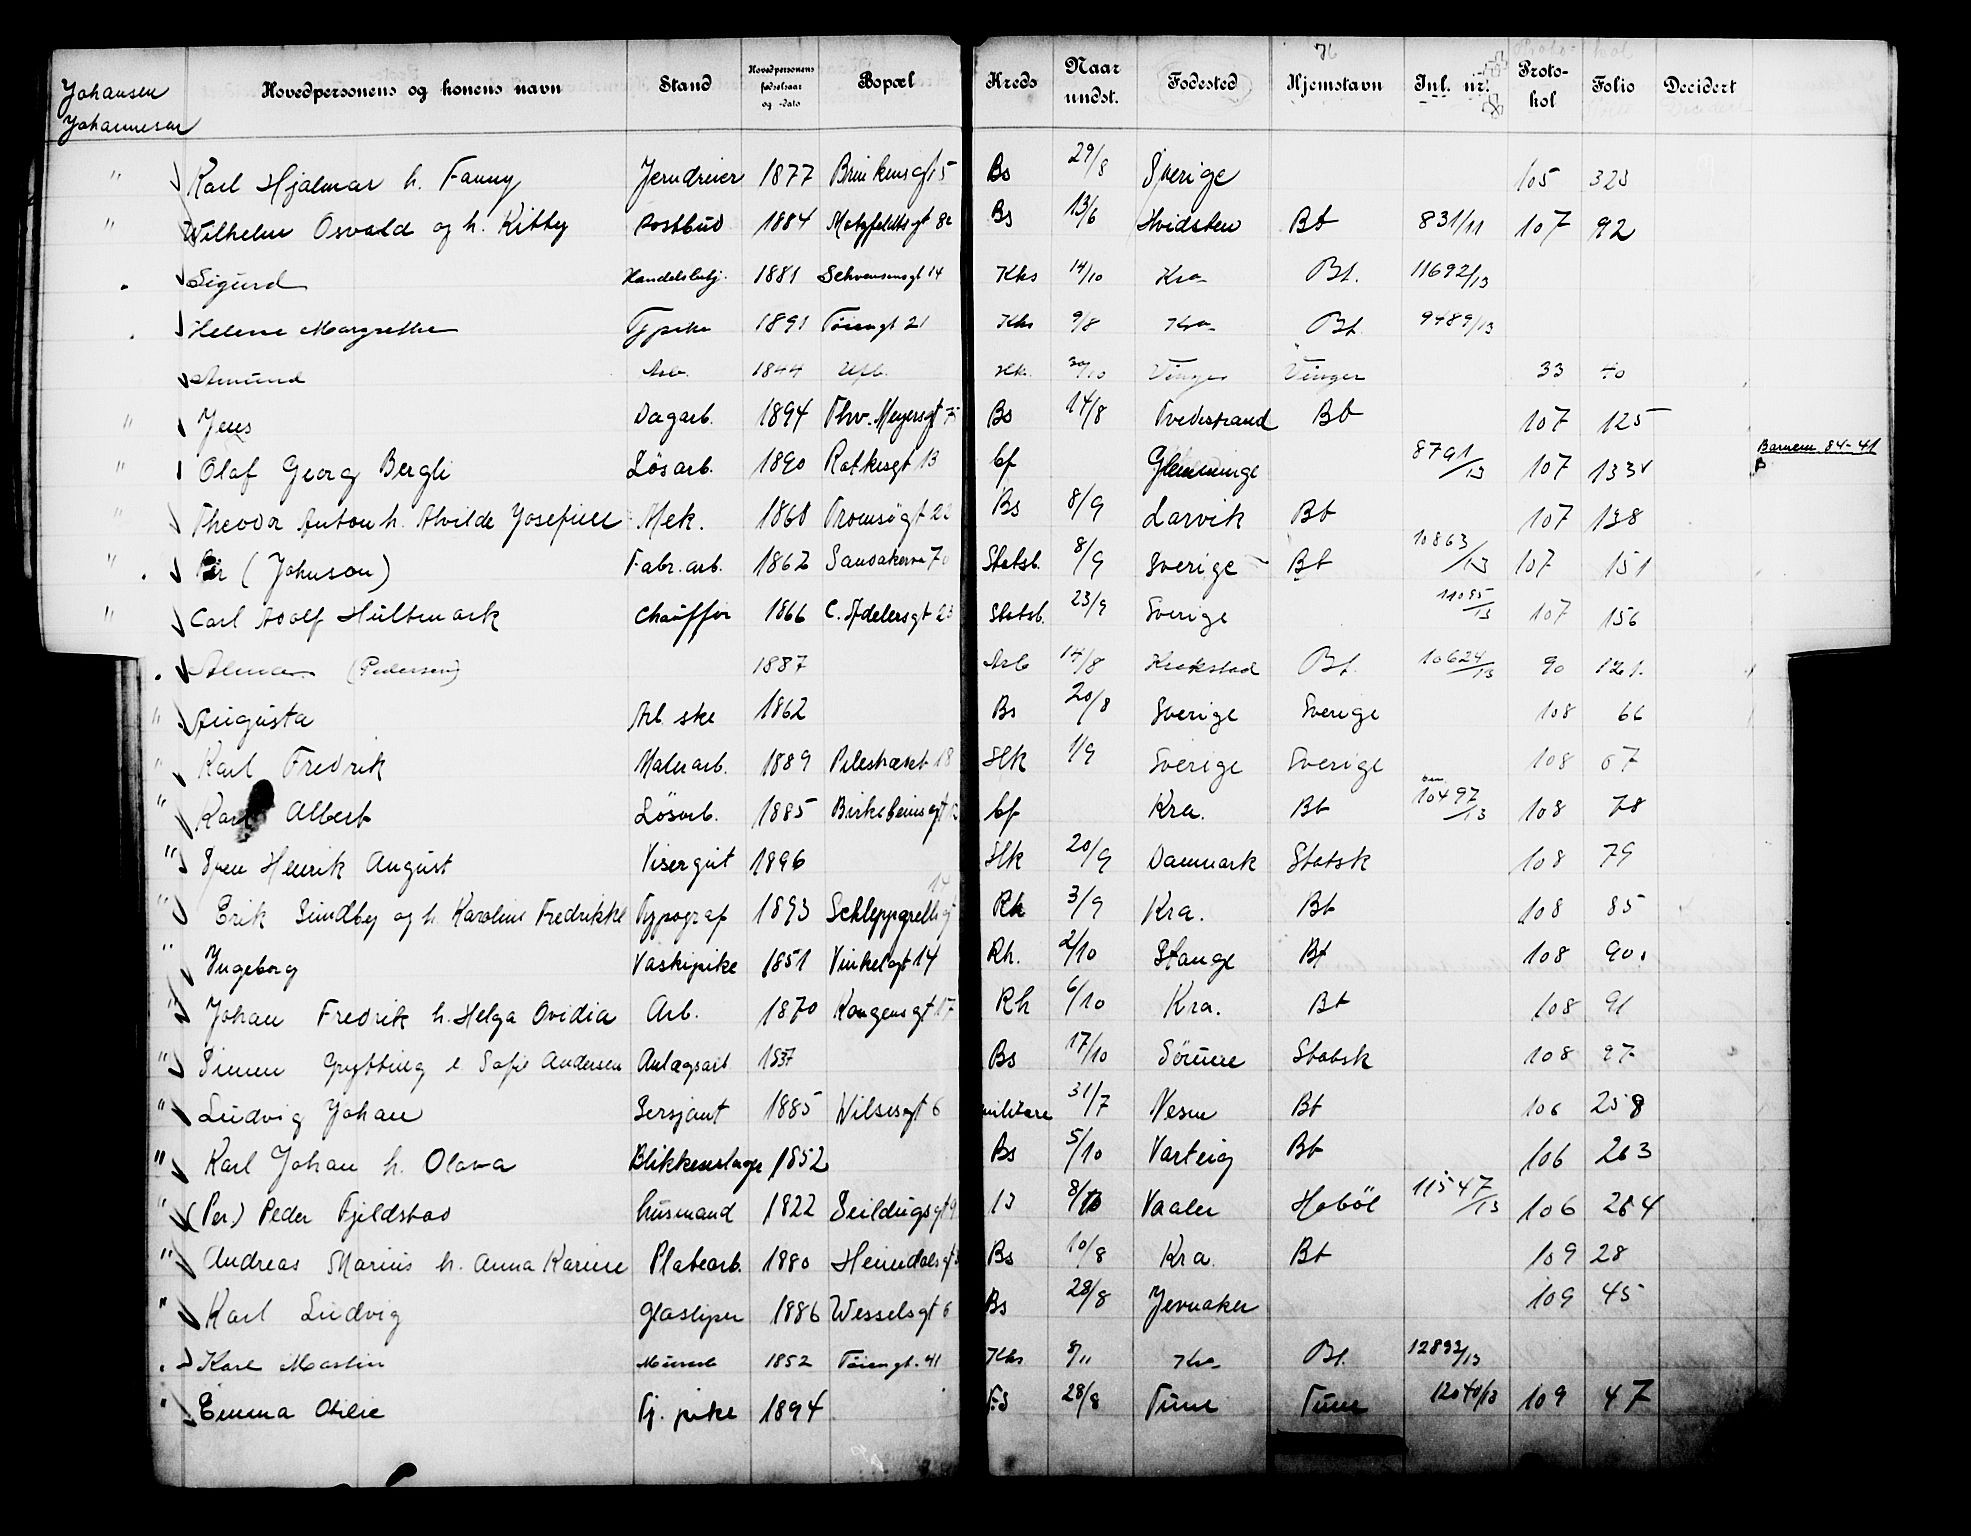 Johansen Johannesen Hovedpersonens og konens navn Stand Hovedpersonens fødselsaar og -dato Bopæl Kreds Naar undst. Fødested Hjemstavn Inl. nr. Protokol Folio Decidert
76
" Karl Hjalmar h. Fanny Jerndreier 1877 Brinkensgt 5 Bs 29/8 Sverige 105 323
" Wilhelm Osvald og h. Kitty Postbud 1884 Motzfeldtsgt 8c Bs 13/6 Hvidsten Bt 831/11 107 92
Sigurd Handelsbetj. 1881 Schwensensgt 14 Khs 14/10 Kra Bt. 11692/13
Helene Margrethe Tj.pike 1891 Tøiengt 21 Khs 9/8 Kra Bt. 9489/13
Amund Arb. 1844 Ufb. Hk. 30/10 Vinger Vinger 33 40
" Jens Dagarb. 1894 Thv. Meyersgt 75 Bs 14/8 Tvedestrand Bt 107 125
" Olaf Georg Bergli Løsarb. 1890 Ratkesgt 13 bf Glemminge 8791/13 107 133 Barnem 84-41
" Theodor Anton h. Alvilde Josefine Mek. 1868 Tromsøgt 22 Bs 8/9 Larvik Bt 107 138
" Per (Johnson) Fabr.arb. 1862 Sandakerve 70 Statsb. 8/9 Sverige Bt 10863/13 107 151
" Carl Adolf Hultmark Chauffør 1866 C. Adelersgt 23 Statsb. 23/9 Sverige 11095/13 107 156
Alma (Pedersen) 1887 Arb 14/8 Krokstad Bt. 10624/13 90 121.
" Augusta Arb ske 1862 Bs 20/8 Sverige Sverige 108 66
" Karl Fredrik Malerarb. 1889 Pilestrædet 18 Hk 1/9 Sverige Sverige 108 67
" Karl Albert Løsarb. 1885 Birkebeinergt 13 bf Kra. Bt 10497/13 108 78
" Sven Henrik August Visergut 1896 Hk 20/9 Danmark Statsk 108 79
" Erik Sundby og h. Karoline Fredrikke Typograf 1893 Schleppegrellsgt 14 Rh 3/9 Kra. Bt 108 85
" Ingeborg Vaskepike 1851 Vinkelgt 14 Rh. 2/10 Stange Bt 108 90.
" Johan Fredrik h. Helga Ovidia Arb. 1870 Kongensgt 17 Rh 6/10 Kra. Bt 108 91
" Simen Grytting e Sofie Andersen Anlægsarb 1837 Bs 17/10 Sørum Statsk 108 97
" Ludvig Johan Sersjant 1885 Wilsesgt 6 militære 31/7 Nesne Bt 106 258
" Karl Johan h. Olava Blikkenslager 1852 Bs 5/10 Varteig Bt 106 263
" (Per) Peder Fjeldstad husmand 1822 Seildugsgt 9 13 8/10 Vaaler Hobøl 11547/13 106 264
" Andreas Marius h. Anna Karine Platearb. 1880 Heimdalsgt Bs 10/8 Kra. Bt 109 28
" Karl Ludvig Glassliper 1886 Wesselsgt 6 Bs 28/8 Jevnaker 109 45
Karl Martin Murarb 1852 Tøiengt. 41 Khs 8/11 Kra Bt. 12893/13
" Emma Otilie Tj. pike 1894 Fs 28/8 Tune Tune 12040/13 109 47